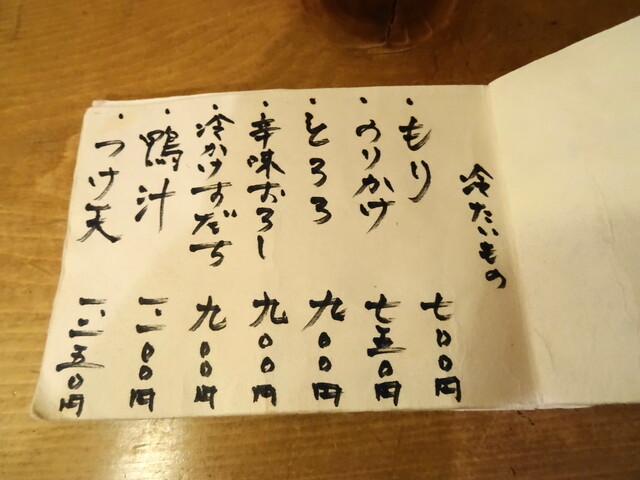 冷たいもの
・もり 七〇〇円
・のりかけ 七五〇円
・とろろ 九〇〇円
・辛味おろし 九〇〇円
・冷かけすだち 九〇〇円
・鴨汁 一一〇〇円
・つけ天 一一五〇円